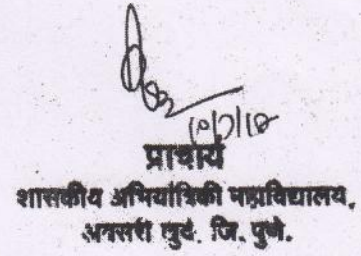 प्राचार्य
शासकीय अभियांत्रिकी महाविद्यालय,
अवसरी खुर्द. जि. पुणे.